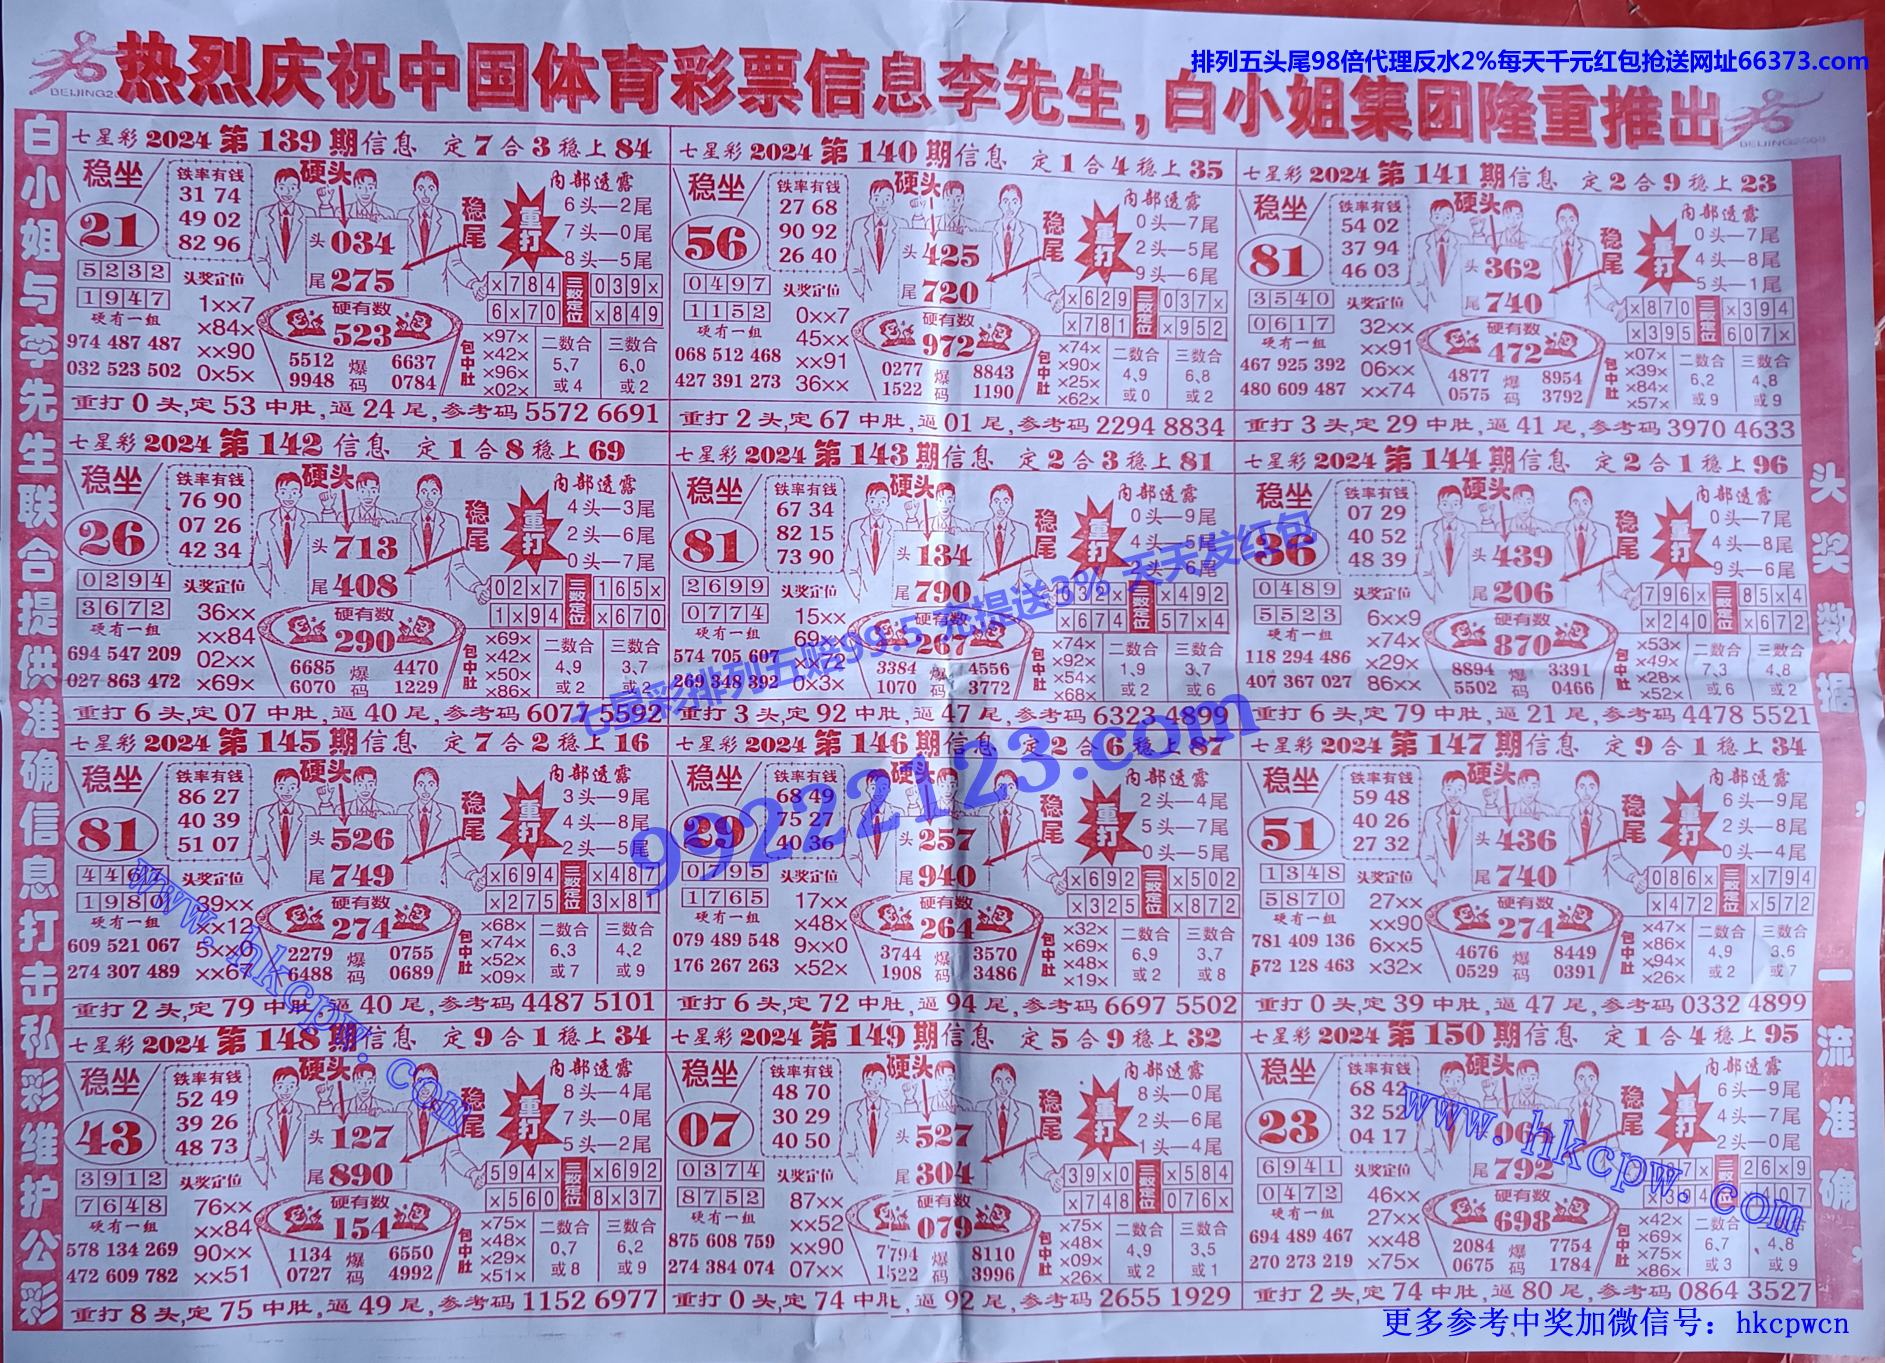 排列五头尾98倍代理反水2%每天千元红包抢送网址66373.com
热烈庆祝中国体育彩票信息李先生,白小姐集团隆重推出
BEIJING2008
白小姐与李先生联合提供准确信息打击私彩维护公彩
头奖数据,一流准确,
七星彩2024第139期信息 定7合3稳上84
稳坐 21
铁率有钱
31 74
49 02
82 96
硬头
头034
尾275
稳尾
重打
内部透露
6头—2尾
7头—0尾
8头—5尾
5232
1947
头奖定位
1××7
×84×
××90
0×5×
硬有一组
974 487 487
032 523 502
硬有数
523
5512 爆 6637
9948 码 0784
×784 三数定位 039×
6×70 ×849
包中肚
×97×
×42×
×96×
×02×
二数合
5,7
或4
三数合
6,0
或2
重打0头,定53中肚,逼24尾,参考码5572 6691
七星彩2024第140期信息 定1合4稳上35
稳坐 56
铁率有钱
27 68
90 92
26 40
硬头
头425
尾720
稳尾
重打
内部透露
0头—7尾
2头—5尾
9头—6尾
0497
1152
头奖定位
0××7
45××
××91
36××
硬有一组
068 512 468
427 391 273
硬有数
972
0277 爆 8843
1522 码 1190
×629 三数定位 037×
×781 ×952
包中肚
×74×
×90×
×25×
×62×
二数合
4,9
或0
三数合
6,8
或2
重打2头,定67中肚,逼01尾,参考码2294 8834
七星彩2024第141期信息 定2合9稳上23
稳坐 81
铁率有钱
54 02
37 94
46 03
硬头
头362
尾740
稳尾
重打
内部透露
0头—7尾
4头—8尾
5头—1尾
3540
0617
头奖定位
32××
××91
06××
××74
硬有一组
467 925 392
480 609 487
硬有数
472
4877 爆 8954
0575 码 3792
×870 三数定位 ×394
×395 607×
包中肚
×07×
×39×
×84×
×57×
二数合
6,2
或9
三数合
4,8
或9
重打3头,定29中肚,逼41尾,参考码3970 4633
七星彩2024第142信息 定1合8稳上69
稳坐 26
铁率有钱
76 90
07 26
42 34
硬头
头713
尾408
稳尾
重打
内部透露
4头—3尾
2头—6尾
0头—7尾
0294
3672
头奖定位
36××
××84
02××
×69×
硬有一组
694 547 209
027 863 472
硬有数
290
6685 爆 4470
6070 码 1229
02×7 三数定位 165×
1×94 ×670
包中肚
×69×
×42×
×50×
×86×
二数合
4,9
或2
三数合
3,7
或2
重打6头,定07中肚,逼40尾,参考码6071 5592
七星彩2024第143期信息 定2合3稳上81
稳坐 81
铁率有钱
67 34
82 15
73 90
硬头
头134
尾790
重打
内部透露
0头—9尾
4头—5尾
2699
0774
头奖定位
15××
69××
××72
0×3×
硬有一组
574 705 607
269 348 392
硬有数
267
3384 爆 4556
1070 码 3772
632× 三数定位 ×492
×674 57×4
包中肚
×74×
×92×
×54×
×68×
二数合
1,9
或2
三数合
3,7
或6
重打3头,定92中肚,逼47尾,参考码6323 4899
七星彩2024第144期信息 定2合1稳上96
稳坐 36
铁率有钱
07 29
40 52
48 39
硬头
头439
尾206
稳尾
重打
内部透露
0头—7尾
4头—8尾
9头—6尾
0489
5523
头奖定位
6××9
×74×
×29×
86××
硬有一组
118 294 486
407 367 027
硬有数
870
8894 爆 3391
5502 码 0466
796× 三数定位 85×4
×240 ×672
包中肚
×53×
×49×
×28×
×52×
二数合
7,3
或6
三数合
4,8
或2
重打6头,定79中肚,逼21尾,参考码4478 5521
七星彩2024第145期信息 定7合2稳上16
稳坐 81
铁率有钱
86 27
40 39
51 07
硬头
头526
尾749
稳尾
重打
内部透露
3头—9尾
4头—8尾
2头—5尾
4467
1980
头奖定位
39××
××12
5××9
××67
硬有一组
609 521 067
274 307 489
硬有数
274
2279 爆 0755
6488 码 0689
×694 三数定位 ×487
×275 3×81
包中肚
×68×
×74×
×52×
×09×
二数合
6,3
或7
三数合
4,2
或9
重打2头,定79中肚,逼40尾,参考码4487 5101
七星彩2024第146期信息 定2合6稳上87
稳坐 29
铁率有钱
68 49
75 27
40 36
硬头
头257
尾940
稳尾
重打
内部透露
2头—4尾
5头—7尾
0头—5尾
0295
1765
头奖定位
17××
×48×
9××0
×52×
硬有一组
079 489 548
176 267 263
硬有数
264
3744 爆 3570
1908 码 3486
×692 三数定位 ×502
×325 ×872
包中肚
×32×
×69×
×48×
×19×
二数合
6,9
或2
三数合
3,7
或8
重打6头,定72中肚,逼94尾,参考码6697 5502
七星彩2024第147期信息 定9合1稳上34
稳坐 51
铁率有钱
59 48
40 26
27 32
硬头
头436
尾740
稳尾
重打
内部透露
6头—9尾
2头—8尾
0头—4尾
1348
5870
头奖定位
27××
××90
6××5
×32×
硬有一组
781 409 136
572 128 463
硬有数
274
4676 爆 8449
0529 码 0391
086× 三数定位 ×794
×472 ×572
包中肚
×47×
×86×
×94×
×26×
二数合
4,9
或2
三数合
3,6
或7
重打0头,定39中肚,逼47尾,参考码0332 4899
七星彩2024第148期信息 定9合1稳上34
稳坐 43
铁率有钱
52 49
39 26
48 73
硬头
头127
尾890
稳尾
重打
内部透露
8头—4尾
7头—0尾
5头—2尾
3912
7648
头奖定位
76××
××84
90××
××51
硬有一组
578 134 269
472 609 782
硬有数
154
1134 爆 6550
0727 码 4992
594× 三数定位 ×692
×560 8×37
包中肚
×75×
×48×
×29×
×51×
二数合
0,7
或8
三数合
6,2
或9
重打8头,定75中肚,逼49尾,参考码1152 6977
七星彩2024第149期信息 定5合9稳上32
稳坐 07
铁率有钱
48 70
30 29
40 50
硬头
头527
尾304
稳尾
重打
内部透露
8头—0尾
2头—6尾
1头—4尾
0374
8752
头奖定位
87××
××52
××90
07××
硬有一组
875 608 759
274 384 074
硬有数
079
7794 爆 8110
1522 码 3996
39×0 三数定位 ×584
×748 076×
包中肚
×75×
×48×
×09×
×26×
二数合
4,9
或2
三数合
3,5
或1
重打0头,定74中肚,逼92尾,参考码2655 1929
七星彩2024第150期信息 定1合4稳上95
稳坐 23
铁率有钱
68 42
32 52
04 17
硬头
尾792
稳尾
重打
内部透露
6头—9尾
4头—7尾
2头—0尾
6941
0472
头奖定位
46××
27××
××48
×75×
硬有一组
694 489 467
270 273 219
硬有数
698
2084 爆 7754
0675 码 1784
26×9
包中肚
×42×
×69×
×75×
×86×
二数合
6,7
或3
4,8
或9
重打2头,定74中肚,逼80尾,参考码0864 3527
七星彩排列五赔99.5 充提送3% 天天发红包
99222123.com
www.hkcpw.com
www.hkcpw.com
更多参考中奖加微信号：hkcpwcn